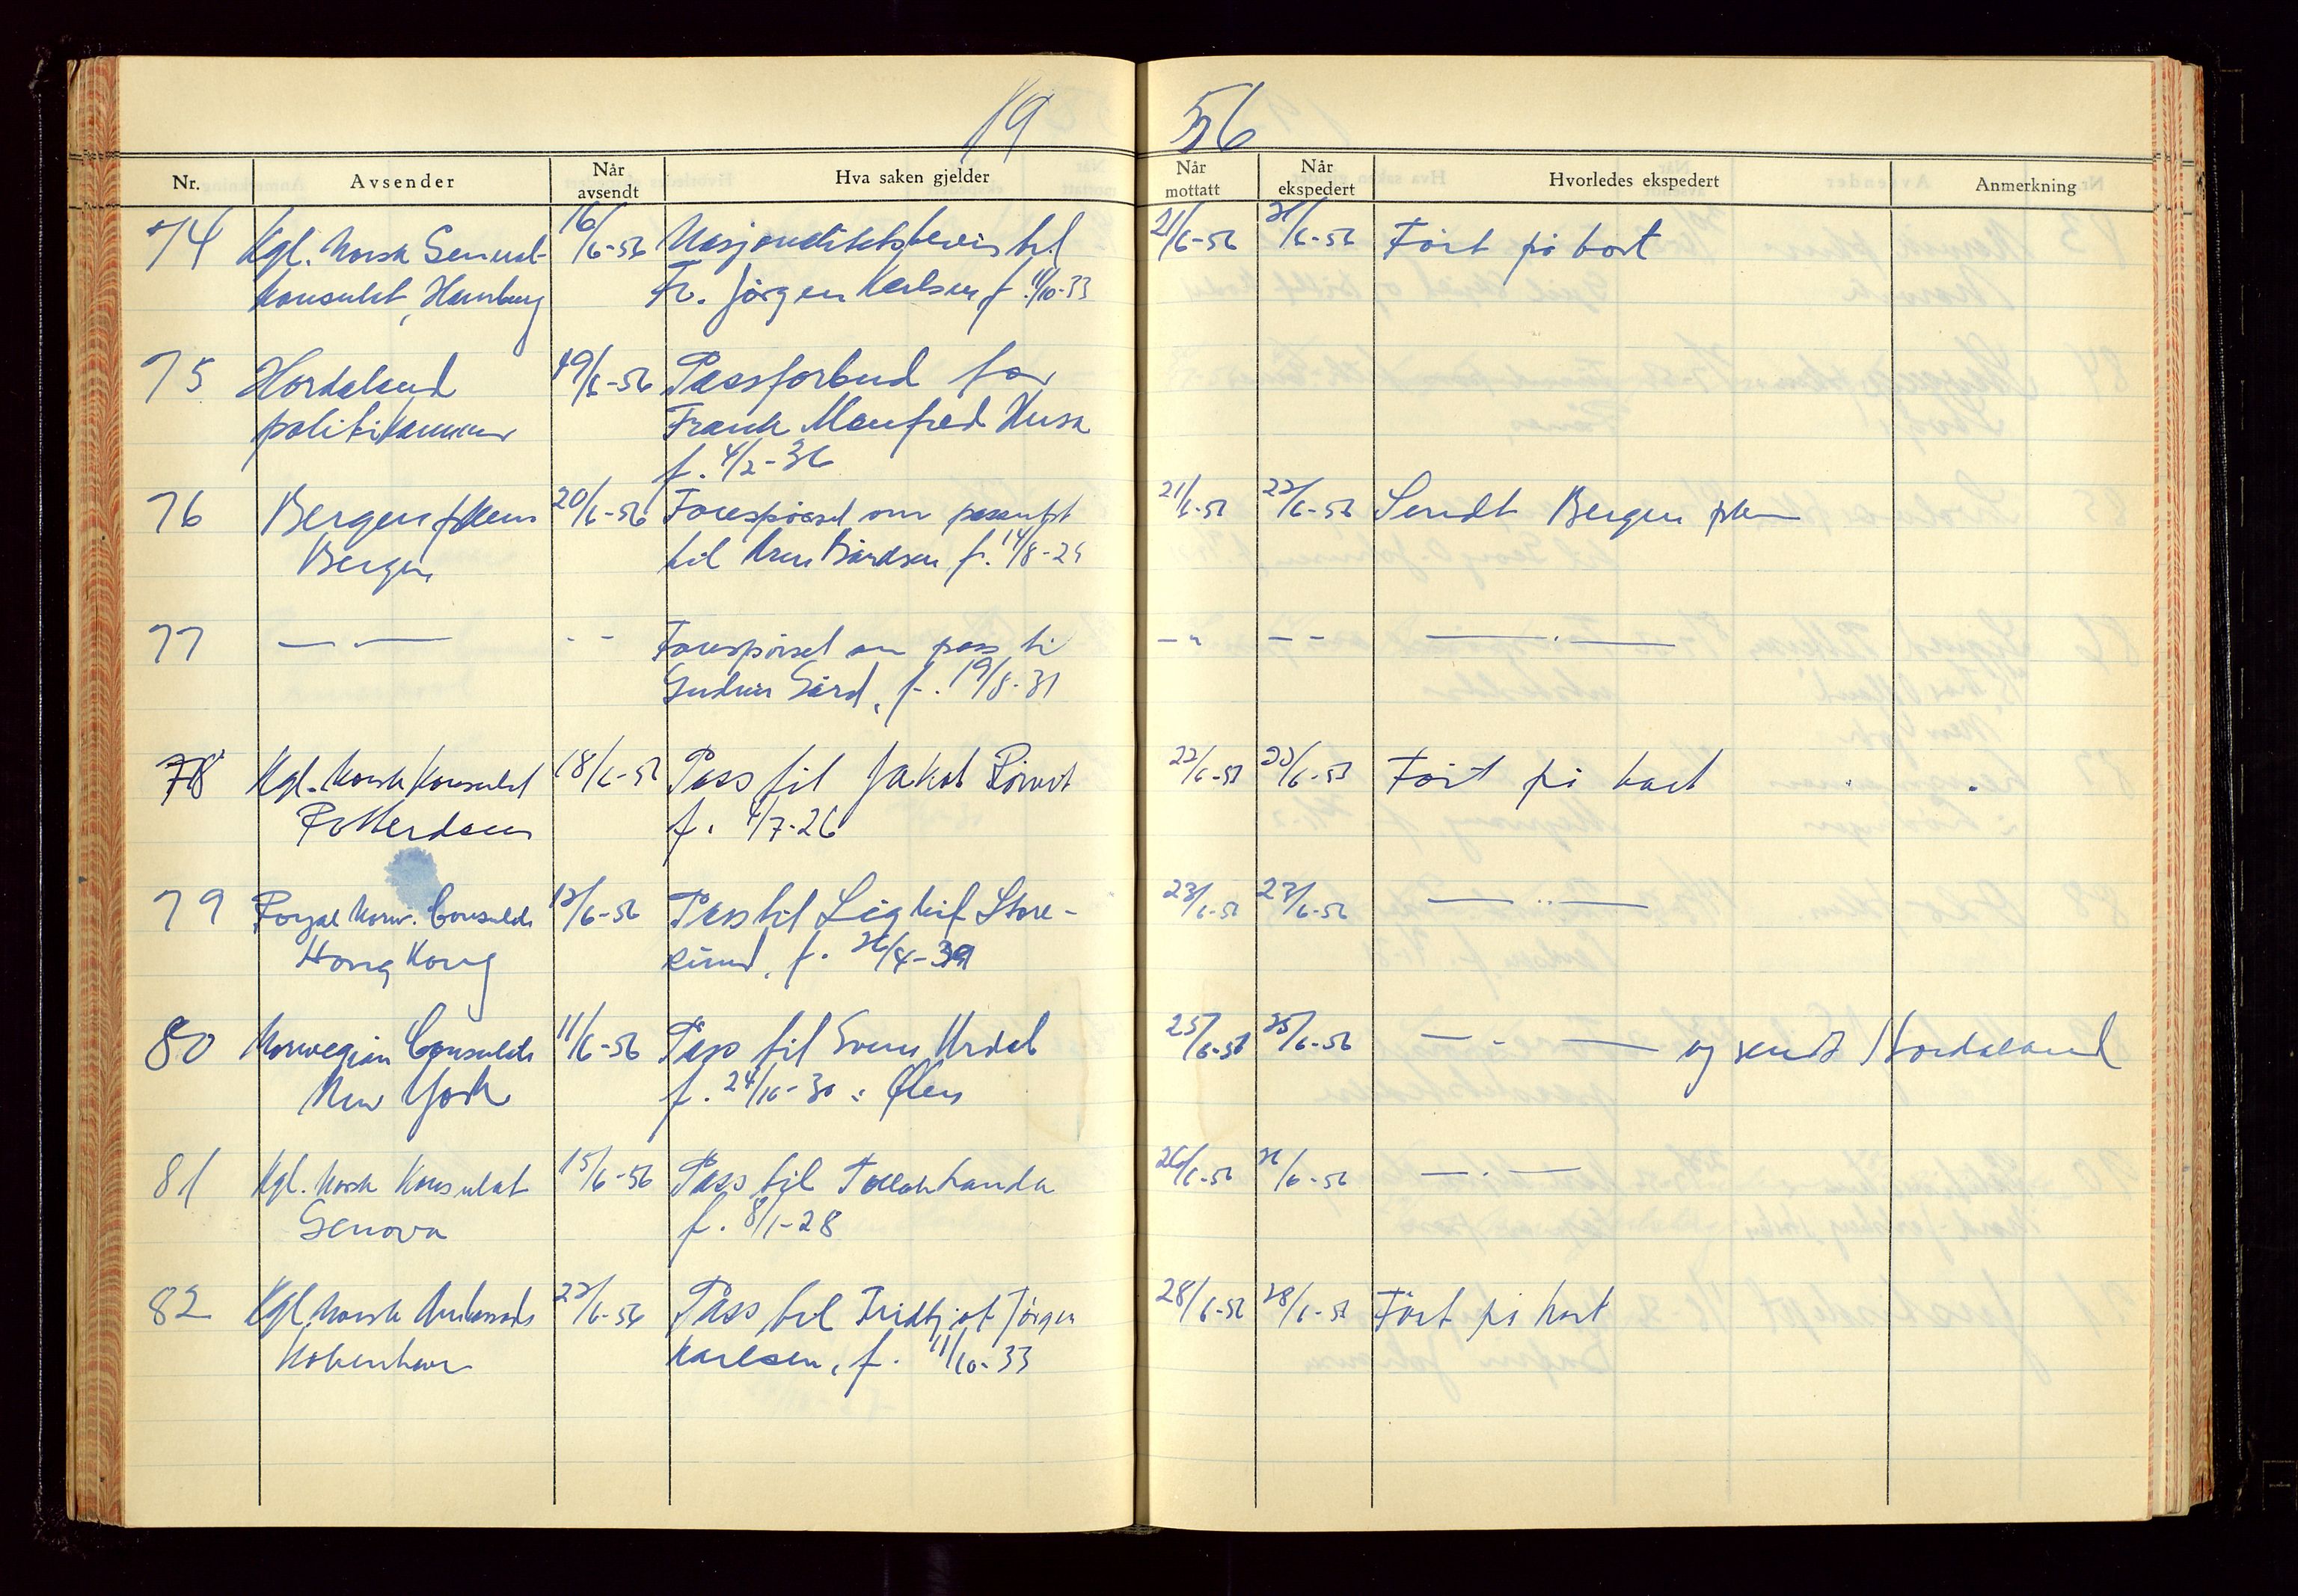 19 56
Nr. Avsender Når avsendt Hva saken gjelder Når mottatt Når ekspedert Hvorledes ekspedert Anmerkning
74 Kgl. Norsk General- 16/6-56 Nasjonalitetsbevis til 21/6-56 21/6-56 Ført på kort
konsulat, Hamburg Fr. Jörgen Karlsen f. 11/10-33
75 Hordaland 19/6-56 Passforbud for
politikammer Frank Manfred Husa
f. 4/2-36
76 Bergen pkam 20/6-56 Forespørsel om passutst 21/6-56 22/6-56 Sendt Bergen pkam
Bergen til Bårdsen, f. 14/8-24
77 — — - - Forespørsel om pass til - " - - — . —
Gudrun f. 19/8-31
78 Kgl. Norsk Konsulat 18/6-56 Pass til Jakob 22/6-56 22/6-56 Ført på kort
Rotterdam f. 4/7-26
79 Royal Norw. Consulate 12/6-56 Pass til Leif Store- 23/6-56 23/6-56 — .. —
Hong Kong sund, f. 26/4-39
80 Norwegian Consulate 11/6-56 Pass til Svein Urdal 25/6-56 25/6-56 — - — og sendt Hordaland
New York f. 24/10-30 i Ølen
81 Kgl. Norsk Konsulat 15/6-56 Pass til 26/6-56 26/6-56 — . —
Genova f. 8/1-28
82 Kgl. Norsk Ambassade 22/6-56 Pass til Fridtjof Jörgen 28/6-56 28/6-56 Ført på kort
København Karlsen, f. 11/10-33